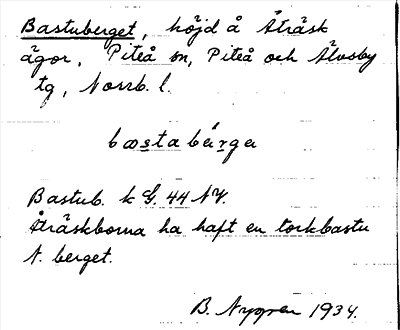 Bastuberget, höjd å Åträsk
ägor, Piteå sn, Piteå och Älvsby
tg, Norrb. l.
bastabärga
Bastub. k G. 44 NV.
Åträskborna ha haft en torkbastu
N. berget.
B. Nygren 1934.